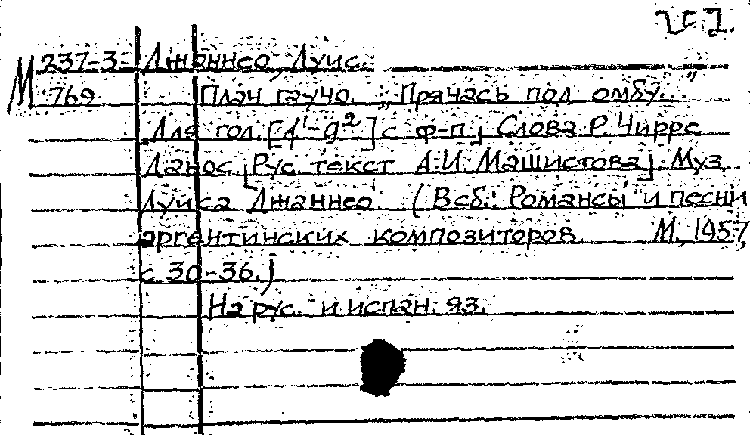 М 237-3= Джаннео, Луис.
769 Плач гаучо. „Прячась под омбу..."
Для гол. [d¹-g²] с ф-п., Слова Р. Чирре
Данос, [Рус. текст А.И. Машистова]. Муз.
Луиса Джаннео. (В сб.: Романсы и песни
аргентинских композиторов. М., 1957,
с 30-36.)
На рус. и испан. яз.